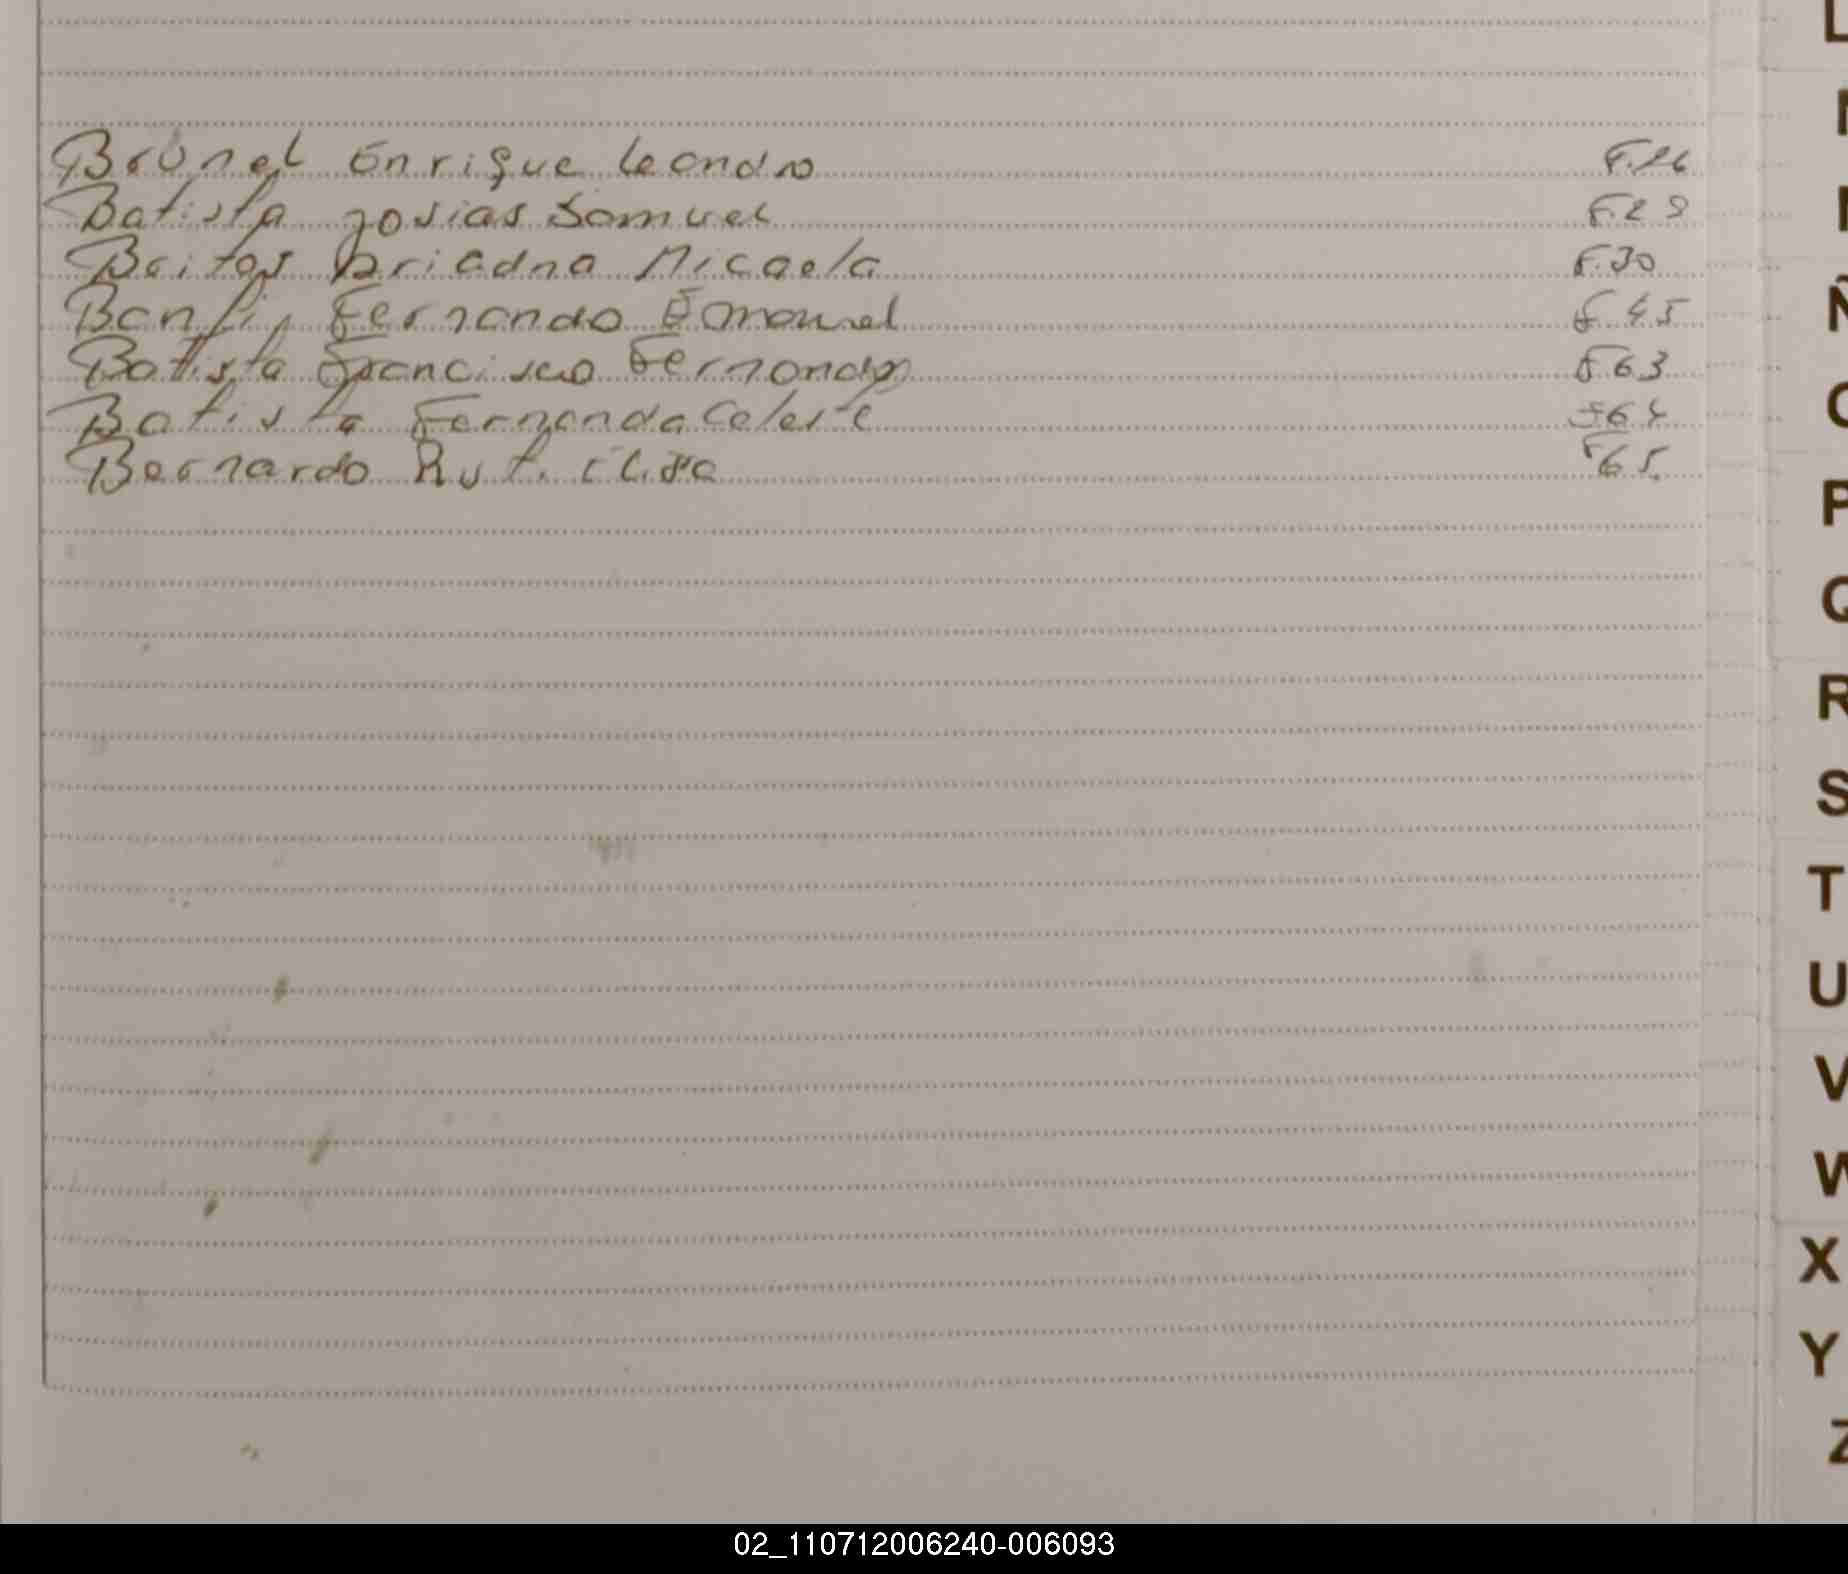 Brunel Enrique Leandro F.26
Batista Josias Samuel F.29
Beitas Ariadna Micaela F.30
Banfi, Fernando Emanuel F 45
Batista Francisco Fernando F 63
Batista Fernanda Celeste F 64
Bernardo Rut. Elisa F 65.
L
Ñ
O
P
Q
R
S
T
U
V
W
X
Y
Z
02_110712006240-006093